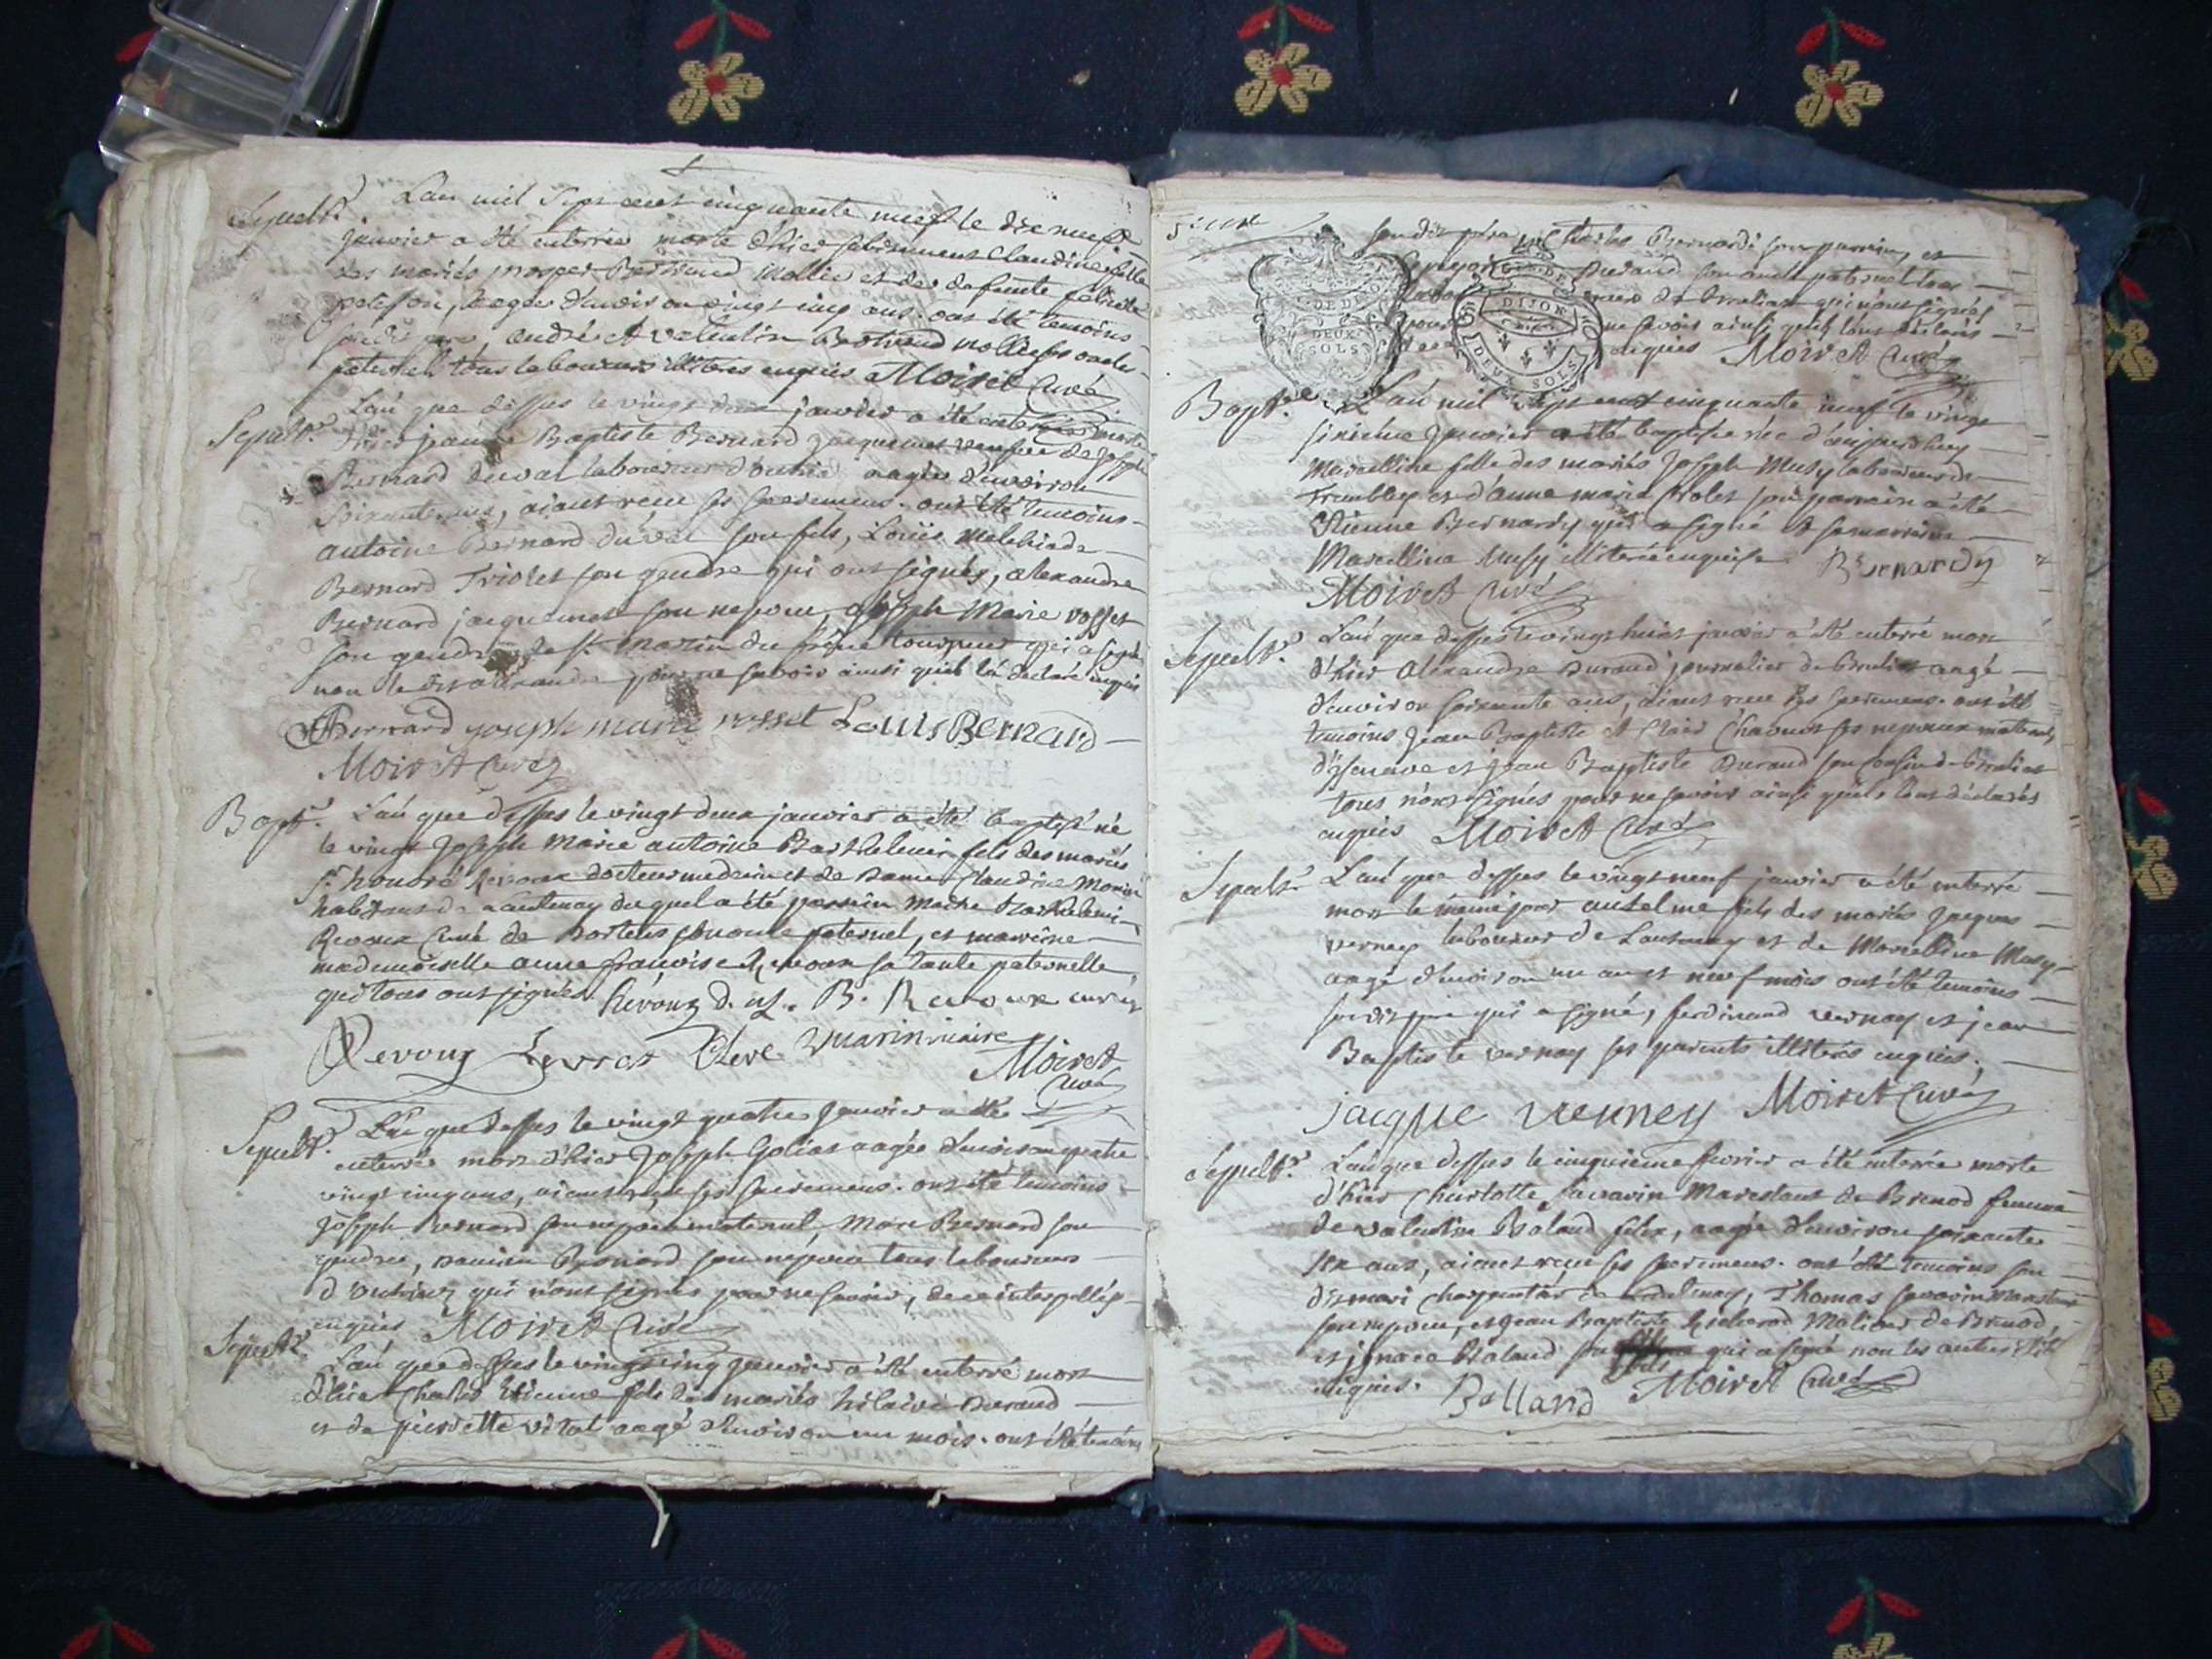 Sepult.re L'an mil Sept cent cinquante neuf le dix neuf
janvier a été enterrée morte d'hier Claudine fille
des mariés prosper Bertrand et de defunte
aagée d'environ vingt cinq ans. ont été temoins
son dit pere, andré et valentin Bertrand oncles
paternels tous laboureurs illiteres enquis Moiret Curé
Sepult.re L'an que dessus le vingt deux janvier a été enterrée morte
d'hier jeanne Baptiste Bernard jacquemet veufve de joseph
Bernard duval laboureur aagée d'environ
ans, aiant receu ses sacremens. ont été temoins
antoine Bernard duval son fils, Loüis
Bernard Triolet son gendre qui ont signés, alexandre
Bernard jacquemet son nepveu, joseph Marie rosset
son gendre de st martin du frene qui a signé
non le dit alexandre pour ne savoir ainsi qu'il l'a declaré enquis
Bernard joseph marie rosset Louis Bernard
Moiret Curé
Bapt.e L'an que dessus le vingt deux janvier a été baptisé né
le vingt joseph Marie antoine Barthelemi fils des mariés
sr honoré Revoux docteur medecin et de Dame Claudine
habitans de Lantenay duquel a été parrain Barthelemi
Revoux Curé de son oncle paternel, et marreine
mademoiselle anne françoise Revoux sa tante paternelle,
qui tous ont signés. Revoux d. m. B. Revoux curé
Revoux vicaire
Moiret
Curé
Sepult.re L'an que dessus le vingt quatre janvier a été
enterré mort d'hier joseph Golias aagé d'environ quatre
vingt cinq ans, aiant receu ses sacremens. ont été temoins
joseph Bernard son nepveu maternel, Marc Bernard son
gendre, Bernard son nepveu tous laboureurs
d'outriaz qui n'ont signés pour ne savoir, de ce interpellés
enquis Moiret Curé
Sepult.re L'an que dessus le vingt cinq janvier a été enterré mort
d'hier Charles Etienne fils des mariés hilaire Durand
et de pierrette vital aagé d'environ un mois. ont été temoins
son dit pere, Charles Bernardi son parrain, et
Durand son oncle paternel tous
de Brulias qui n'ont signés
pour ne savoir ainsi qu'ils l'ont declarés
enquis Moiret Curé
DEUX
SOLS
DIJON
DEU SOLS
Bapt.e L'an mil sept cent cinquante neuf le vingt
sixieme janvier a été baptisée née d'aujourd'huy
Marcelline fille des mariés joseph Musy laboureur de
Tremblex et d'anne marie son parrain a été
Etienne Bernardy qui a signé et sa marreine
Marcelline Musy illiterée enquise Bernardy
Moiret Curé
Sepult.re L'an que dessus le vingt huit janvier a été enterré mort
d'hier Alexandre Durand journalier de Brulias aagé
d'environ soixante ans, aiant receu ses sacremens. ont été
temoins jean Baptiste et ses nepveux maternels
d'izenave et jean Baptiste Durand son cousin de Brulias
tous n'ont signés pour ne savoir ainsi qu'ils l'ont déclarés
enquis Moiret Curé
Sepult.re L'an que dessus le vingt neuf janvier a été enterré
mort le même jour anselme fils des mariés jacques
verney laboureur de Lantenay et de Marcelline Musy
aagé d'environ un an et neuf mois ont été temoins
son dit pere qui a signé, ferdinand vernay et jean
Baptiste vernay ses parents illiterés enquis.
jacque verney Moiret Curé
Sepult.re L'an que dessus le cinquieme fevrier a été enterrée morte
d'hier Charlotte savarin Marestant de Brenod femme
de valentin Baland aagée d'environ soixante
six ans, aiant receu ses sacremens. ont été temoins son
dit mari charpentier de Lantenay, Thomas savarin Marestant
son nepveu, et jean Baptiste de Brenod,
et ignace Baland son fils qui a signé non les autres
enquis. Balland Moiret Curé